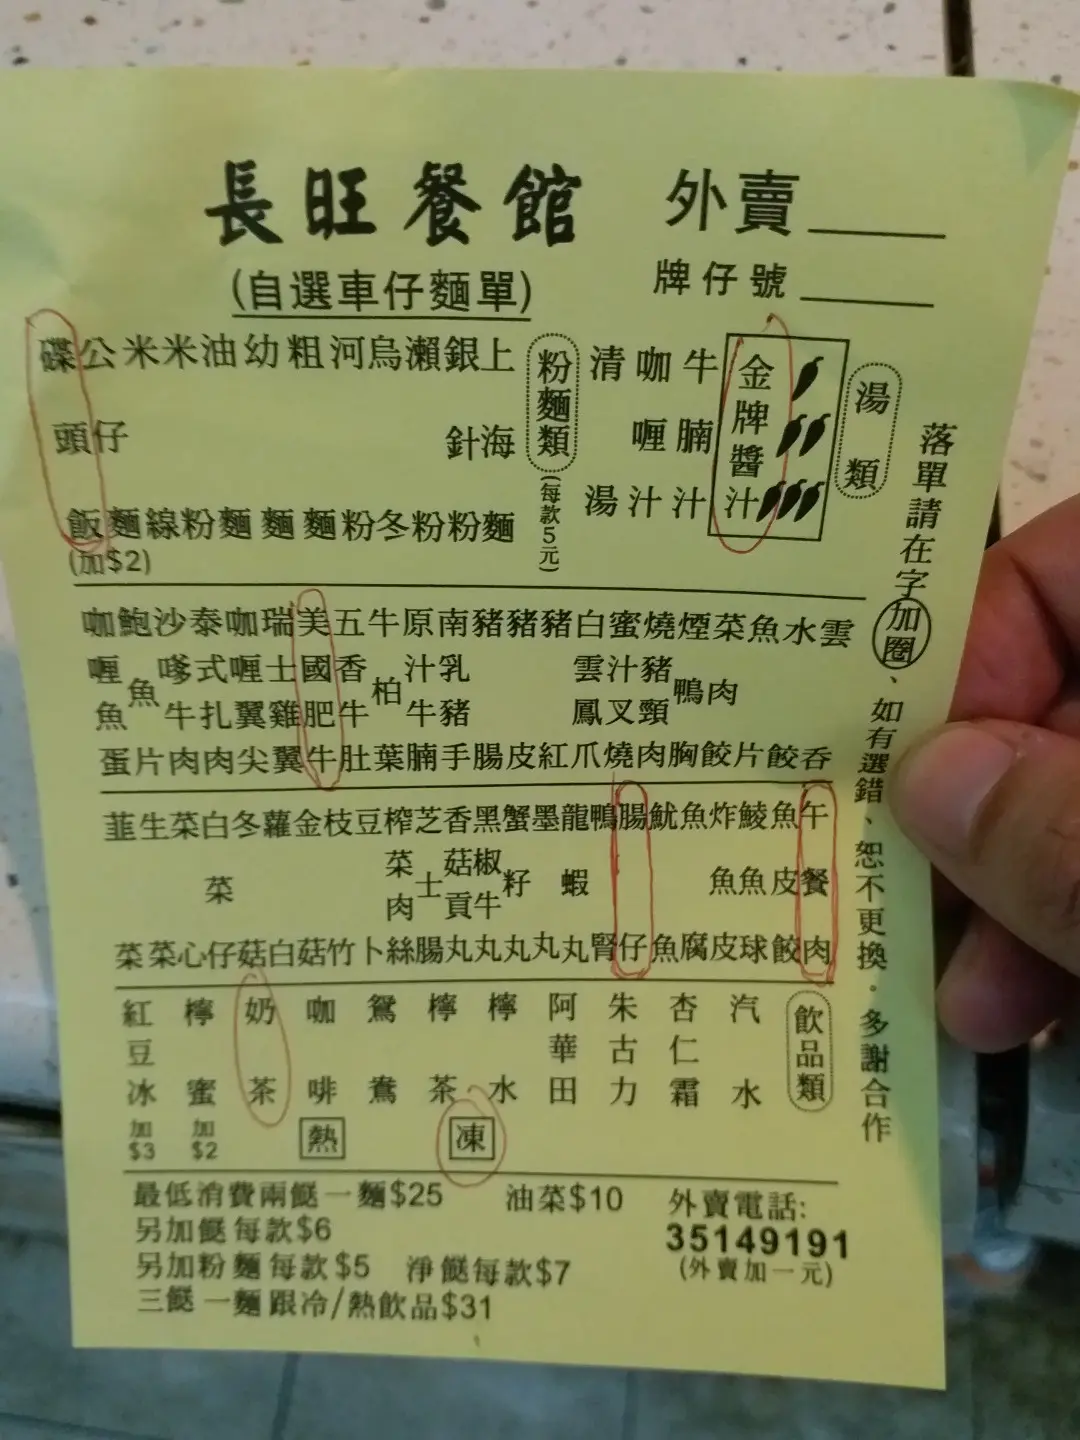 長旺餐館
外賣
(自選車仔麵單)
牌仔號
湯類
金牌醬汁
牛腩汁
咖喱汁
清湯
粉麵類
(每款5元)
上海麵
銀針粉
瀨粉
烏冬
河粉
粗麵
幼麵
油麵
米粉
米線
公仔麵
碟頭飯
(加$2)
雲吞
水餃
魚片
菜肉餃
煙鴨胸
燒豬頸肉
蜜汁叉燒
白雲鳳爪
豬紅
豬皮
豬腸
南乳豬手
原汁牛腩
牛柏葉
五香牛肚
美國肥牛
瑞士雞翼
咖喱翼尖
泰式扎肉
沙嗲牛肉
鮑魚片
咖喱魚蛋
午餐肉
魚皮餃
鯪魚球
炸魚皮
魚腐
魷魚
腸仔
鴨腎
龍蝦丸
墨丸
蟹籽丸
黑椒牛丸
香菇貢丸
芝士腸
榨菜肉絲
豆卜
枝竹
金菇
蘿白
冬菇
白菜仔
菜心
生菜
韮菜
飲品類
汽水
杏仁霜
朱古力
阿華田
檸水
檸茶
鴛鴦
咖啡
奶茶
檸蜜
加$2
紅豆冰
加$3
熱
凍
最低消費兩餸一麵$25
油菜$10
另加餸每款$6
另加粉麵每款$5
淨餸每款$7
三餸一麵跟冷/熱飲品$31
外賣電話:
35149191
(外賣加一元)
落單請在字加圈、如有選錯、恕不更換。多謝合作